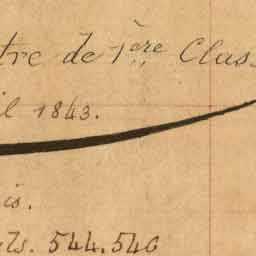 tre de 1ère Clas
il 1843.
is.
ts. 544.540